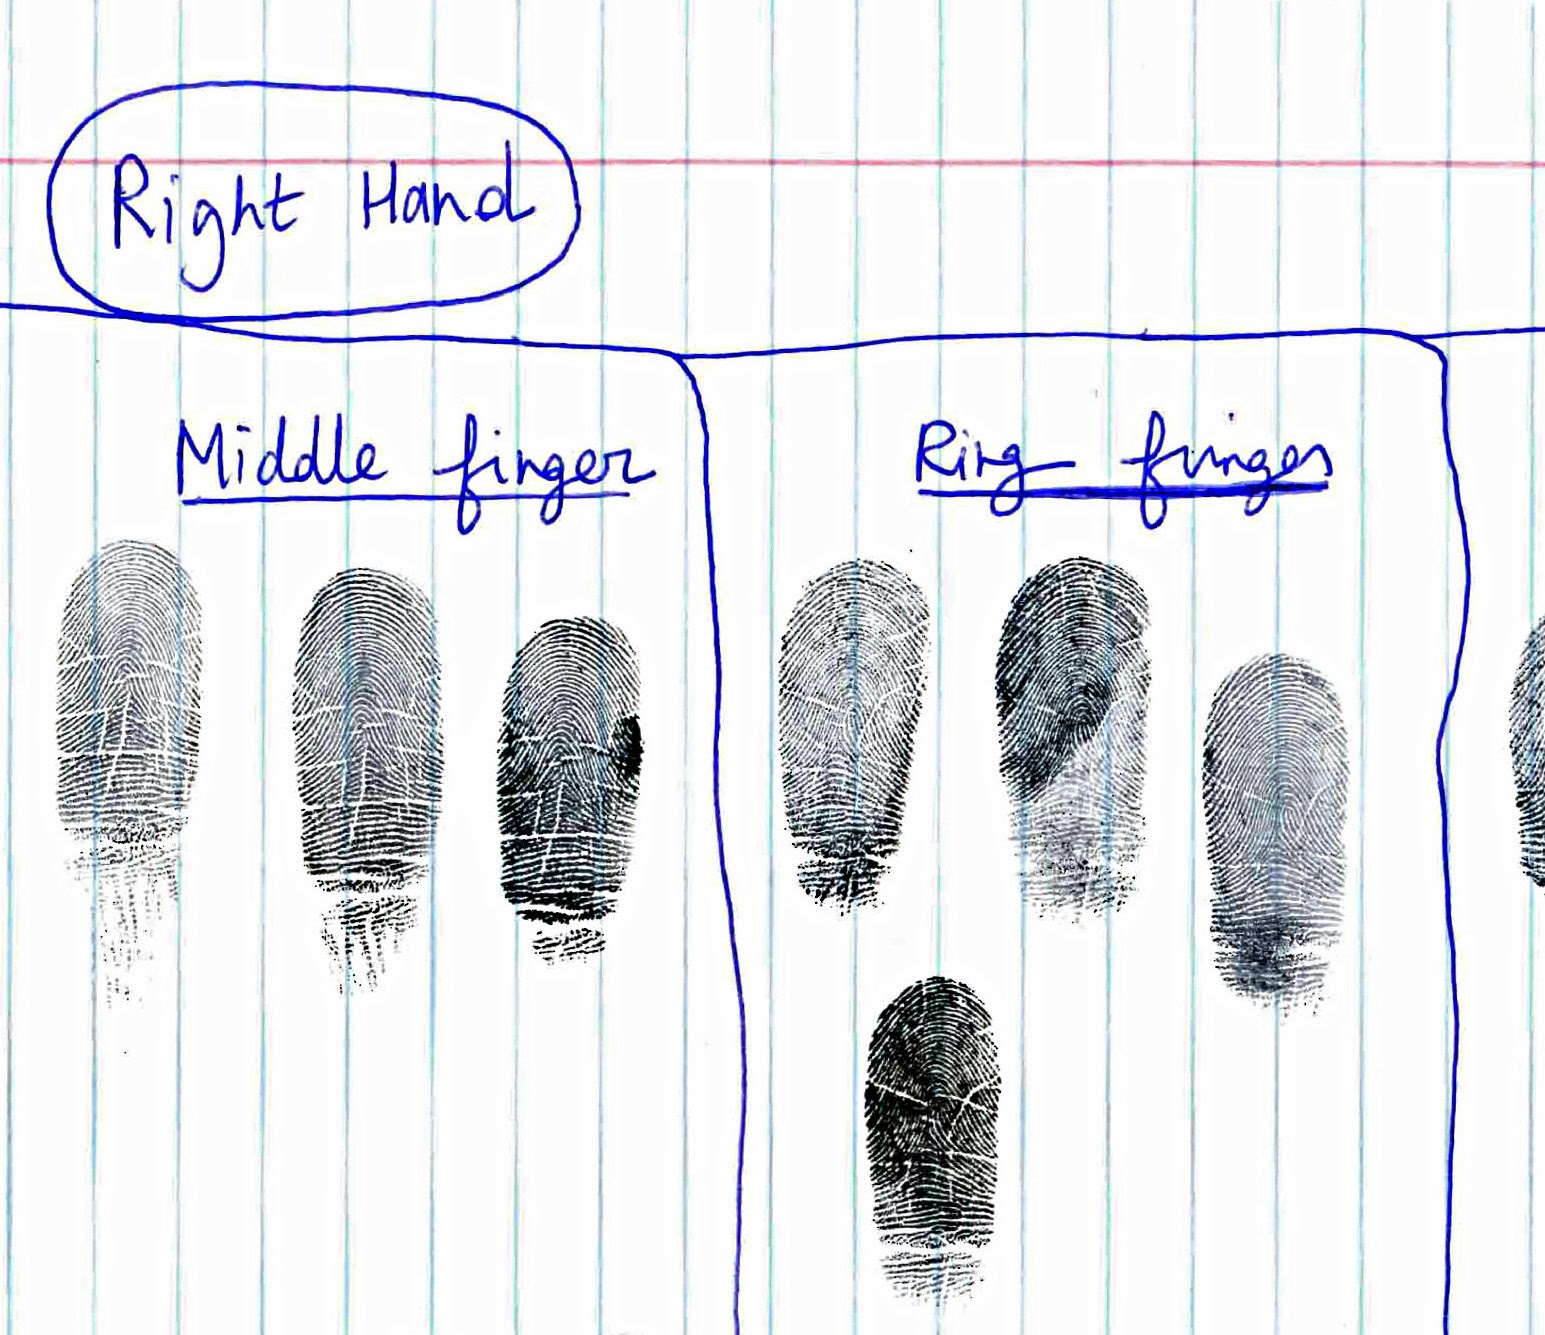 Right Hand
Middle finger
Ring finger